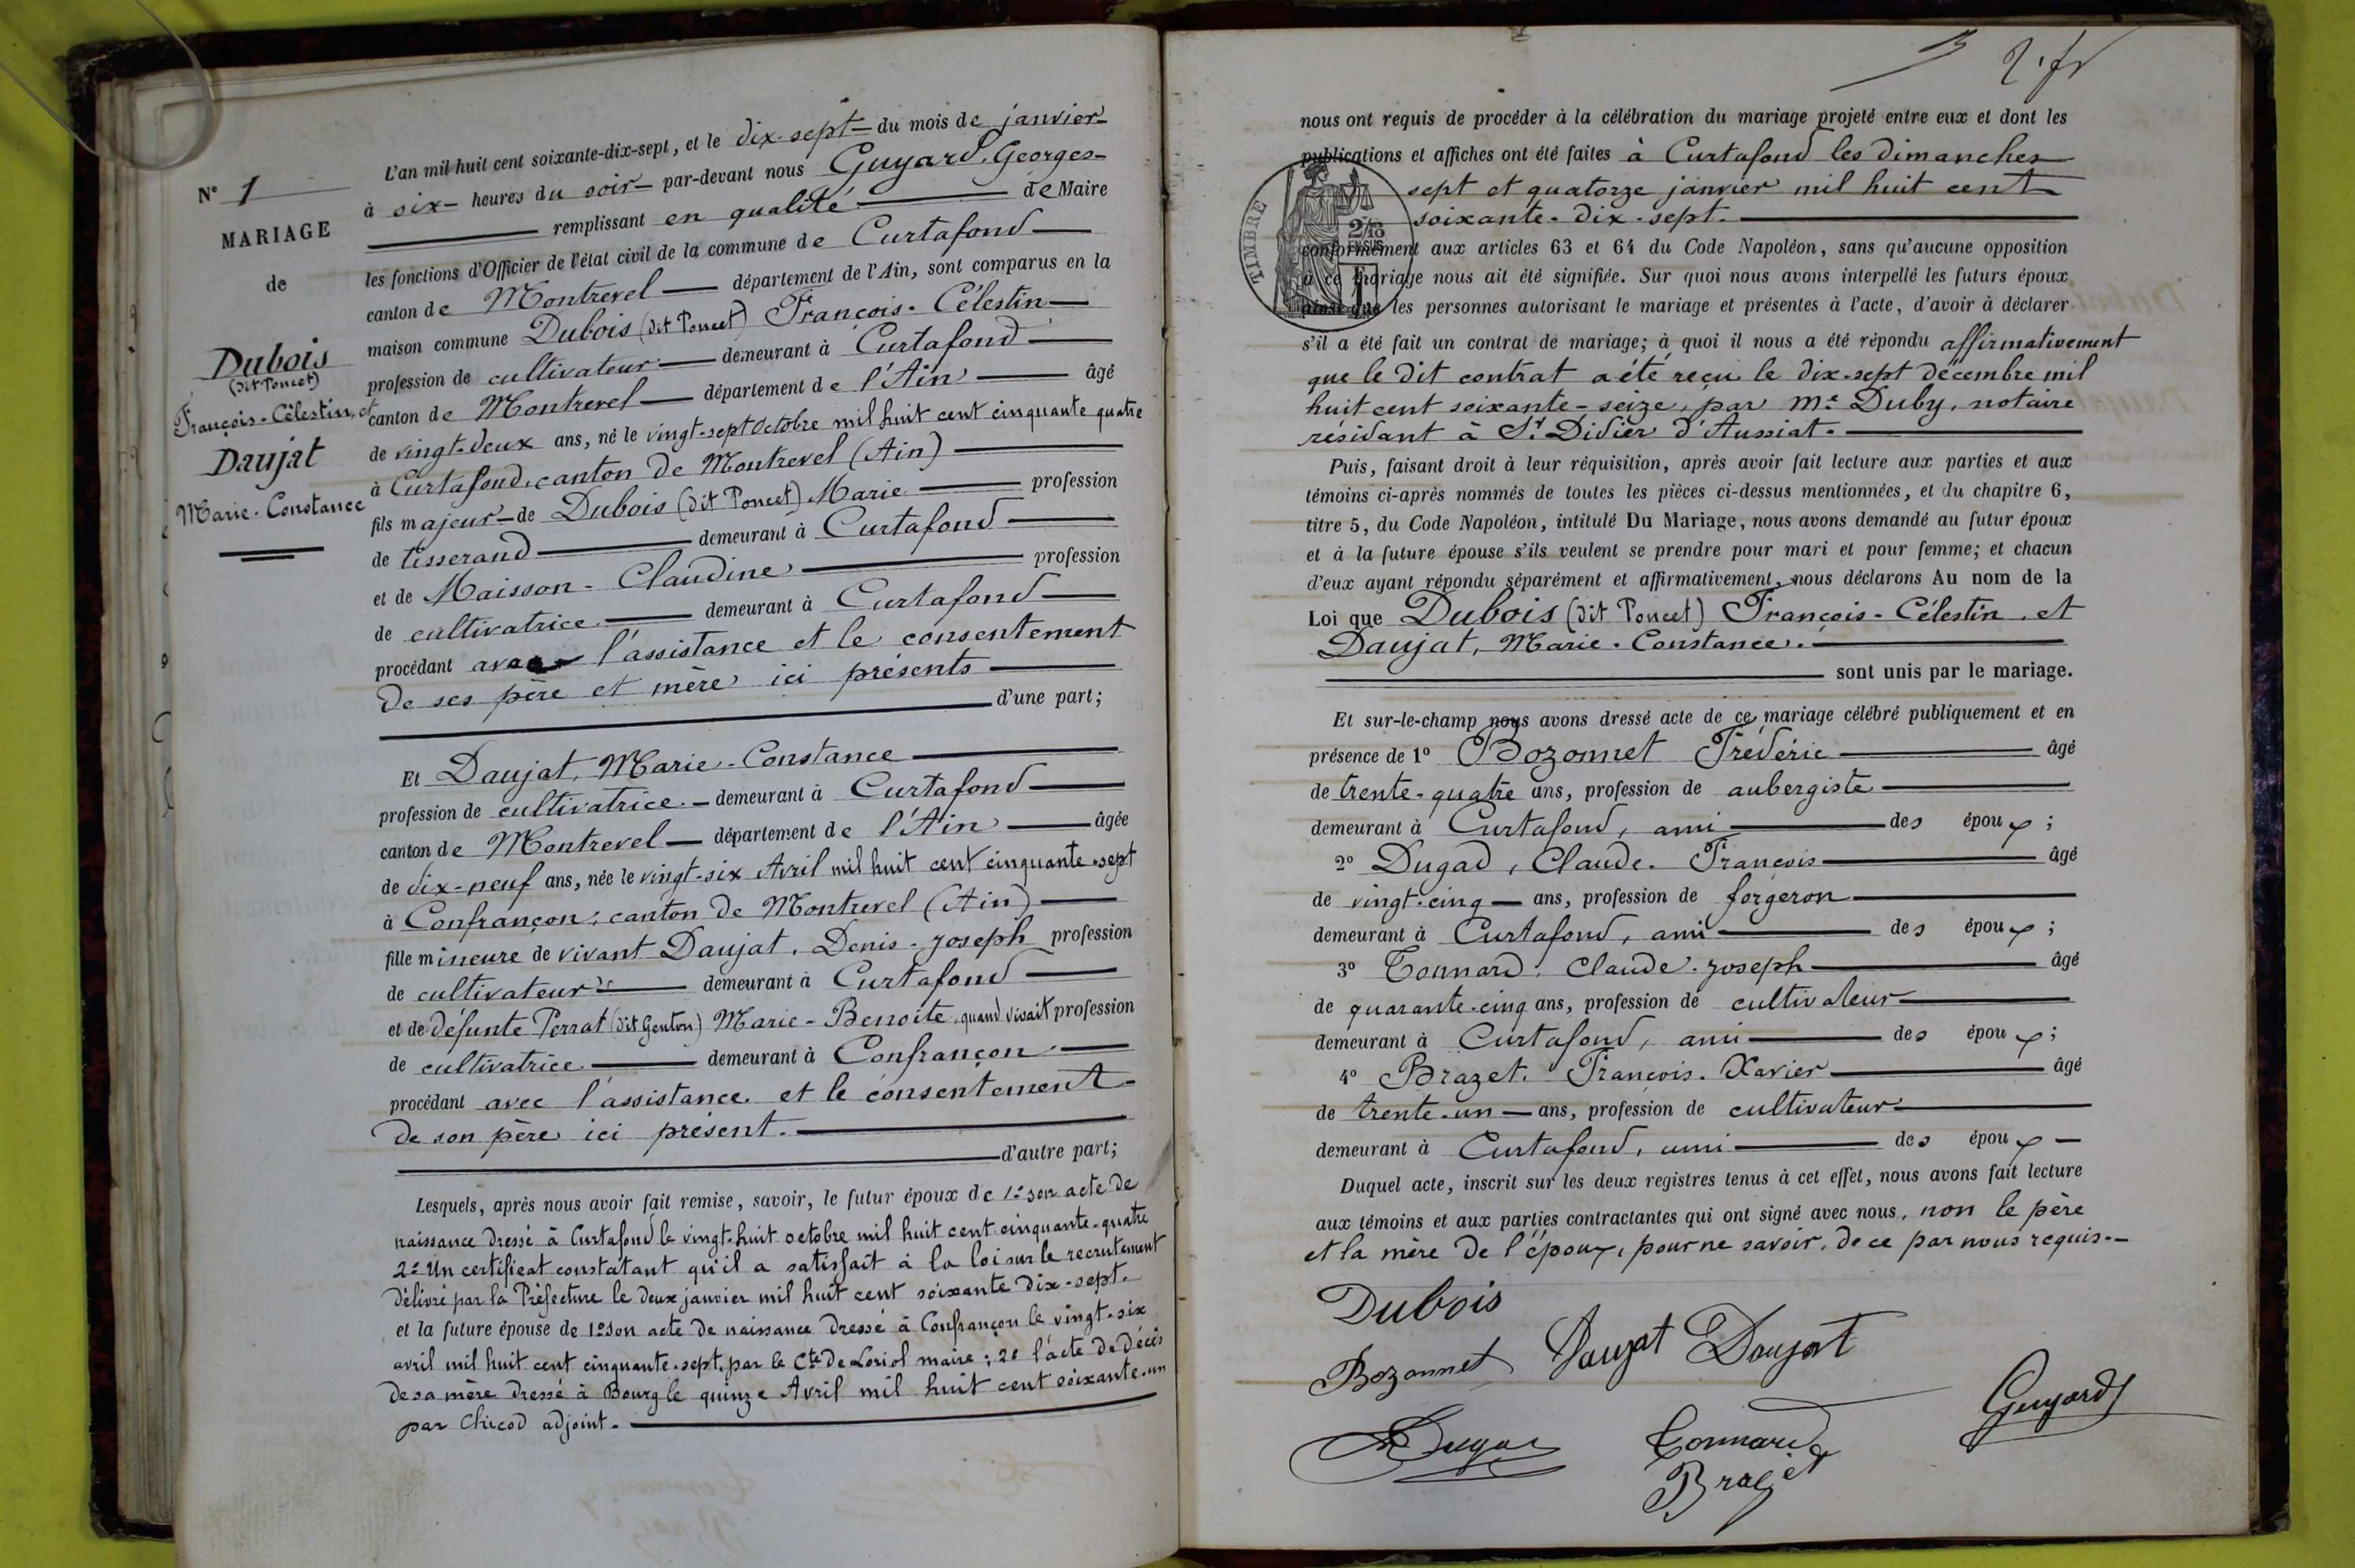 N° 1
MARIAGE
de
Dubois
(dit Poncet)
François-Célestin, et
Daujat
Marie-Constance
L'an mil huit cent soixante-dix-sept, et le dix-sept du mois de janvier
à six heures du soir par-devant nous Guyard, Georges
remplissant en qualité de Maire
les fonctions d'Officier de l'état civil de la commune de Curtafond
canton de Montrevel département de l'Ain, sont comparus en la
maison commune Dubois (dit Poncet) François-Célestin
profession de cultivateur demeurant à Curtafond
canton de Montrevel département de l'Ain âgé
de vingt-deux ans, né le vingt-sept Octobre mil huit cent cinquante quatre
à Curtafond, canton de Montrevel (Ain)
fils majeur de Dubois (dit Poncet) Marie profession
de tisserand demeurant à Curtafond
et de Maisson-Claudine profession
de cultivatrice demeurant à Curtafond
procédant avec l'assistance et le consentement
de ses père et mère ici présents
d'une part;
Et Daujat, Marie-Constance
profession de cultivatrice demeurant à Curtafond
canton de Montrevel département de l'Ain âgée
de dix-neuf ans, née le vingt-six Avril mil huit cent cinquante-sept
à Confrançon, canton de Montrevel (Ain)
fille mineure de vivant Daujat, Denis-Joseph profession
de cultivateur demeurant à Curtafond
et de défunte Perrat (dit Genton) Marie-Benoîte, quand vivait profession
de cultivatrice demeurant à Confrançon
procédant avec l'assistance et le consentement
de son père ici présent.
d'autre part;
Lesquels, après nous avoir fait remise, savoir, le futur époux de 1° son acte de
naissance dressé à Curtafond le vingt-huit octobre mil huit cent cinquante-quatre
2° Un certificat constatant qu'il a satisfait à la loi sur le recrutement
délivré par la Préfecture le deux janvier mil huit cent soixante dix-sept.
et la future épouse de 1° son acte de naissance dressé à Confrançon le vingt-six
avril mil huit cent cinquante-sept, par le Cte de Loriol maire; 2° l'acte de décès
de sa mère dressé à Bourg le quinze Avril mil huit cent soixante-un
par Chicod adjoint.
nous ont requis de procéder à la célébration du mariage projeté entre eux et dont les
publications et affiches ont été faites à Curtafond les dimanches
sept et quatorze janvier mil huit cent
soixante-dix-sept.
TIMBRE
2/10
EN SUS
conformément aux articles 63 et 64 du Code Napoléon, sans qu'aucune opposition
à ce mariage nous ait été signifiée. Sur quoi nous avons interpellé les futurs époux
ainsi que les personnes autorisant le mariage et présentes à l'acte, d'avoir à déclarer
s'il a été fait un contrat de mariage; à quoi il nous a été répondu affirmativement
que le dit contrat a été reçu le dix-sept décembre mil
huit cent soixante-seize, par Me Duby, notaire
résidant à St Didier d'Aussiat.
Puis, faisant droit à leur réquisition, après avoir fait lecture aux parties et aux
témoins ci-après nommés de toutes les pièces ci-dessus mentionnées, et du chapitre 6,
titre 5, du Code Napoléon, intitulé Du Mariage, nous avons demandé au futur époux
et à la future épouse s'ils veulent se prendre pour mari et pour femme; et chacun
d'eux ayant répondu séparément et affirmativement, nous déclarons Au nom de la
Loi que Dubois (dit Poncet) François-Célestin, et
Daujat, Marie-Constance.
sont unis par le mariage.
Et sur-le-champ nous avons dressé acte de ce mariage célébré publiquement et en
présence de 1° Bozonnet Frédéric âgé
de trente-quatre ans, profession de aubergiste
demeurant à Curtafond, ami des époux;
2° Dugad, Claude-François âgé
de vingt-cinq ans, profession de forgeron
demeurant à Curtafond, ami des époux;
3° Tonnard, Claude-Joseph âgé
de quarante-cinq ans, profession de cultivateur
demeurant à Curtafond, ami des époux;
4° Brazet, François-Xavier âgé
de trente-un ans, profession de cultivateur
demeurant à Curtafond, ami des époux
Duquel acte, inscrit sur les deux registres tenus à cet effet, nous avons fait lecture
aux témoins et aux parties contractantes qui ont signé avec nous, non le père
et la mère de l'époux, pour ne savoir, de ce par nous requis.
Dubois
Bozonnet Daujat Daujat
Guyard
Dugad Tonnard
Brazet